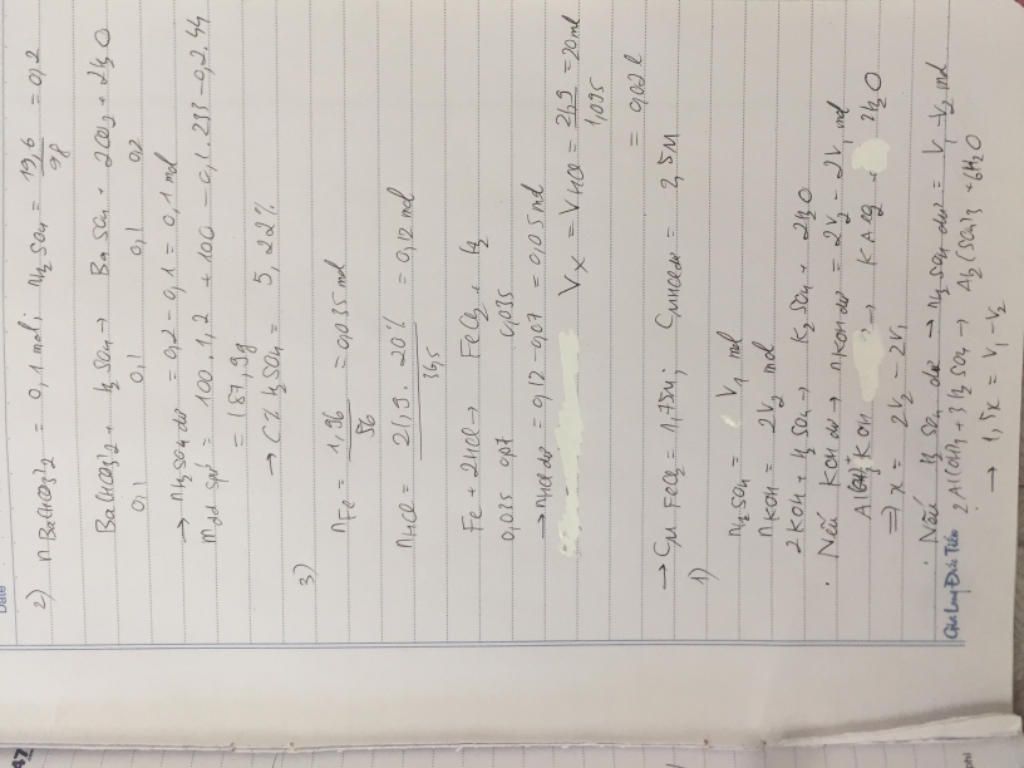 Date
2) n Ba(HCO3)2 = 0,1 mol; nH2SO4 = 19,6/98 = 0,2
Ba(HCO3)2 + H2SO4 → BaSO4 + 2CO2 + 2H2O
0,1 0,1 0,1 0,2
→ nH2SO4 dư = 0,2 - 0,1 = 0,1 mol
mdd spứ = 100.1,2 + 100 - 0,1.233 - 0,2.44
= 187,9g
→ C% H2SO4 = 5,22%
3)
nFe = 1,96/56 = 0,035 mol
nHCl = 21,9.20%/36,5 = 0,12 mol
Fe + 2HCl → FeCl2 + H2
0,035 0,07 0,035
→ nHCl dư = 0,12 - 0,07 = 0,05 mol
Vx = VHCl = 21,9/1,095 = 20ml
= 0,02 l
→ CM FeCl2 = 1,75M; CM HCl dư = 2,5M
1)
nH2SO4 = V1 mol
nKOH = 2V2 mol
2KOH + H2SO4 → K2SO4 + 2H2O
. Nếu KOH dư → nKOH dư = 2V2 - 2V1 mol
Al(OH)3 + KOH → KAlO2 + 2H2O
=> x = 2V2 - 2V1
. Nếu H2SO4 dư → nH2SO4 dư = V1 - V2 mol
2Al(OH)3 + 3H2SO4 → Al2(SO4)3 + 6H2O
→ 1,5x = V1 - V2
47